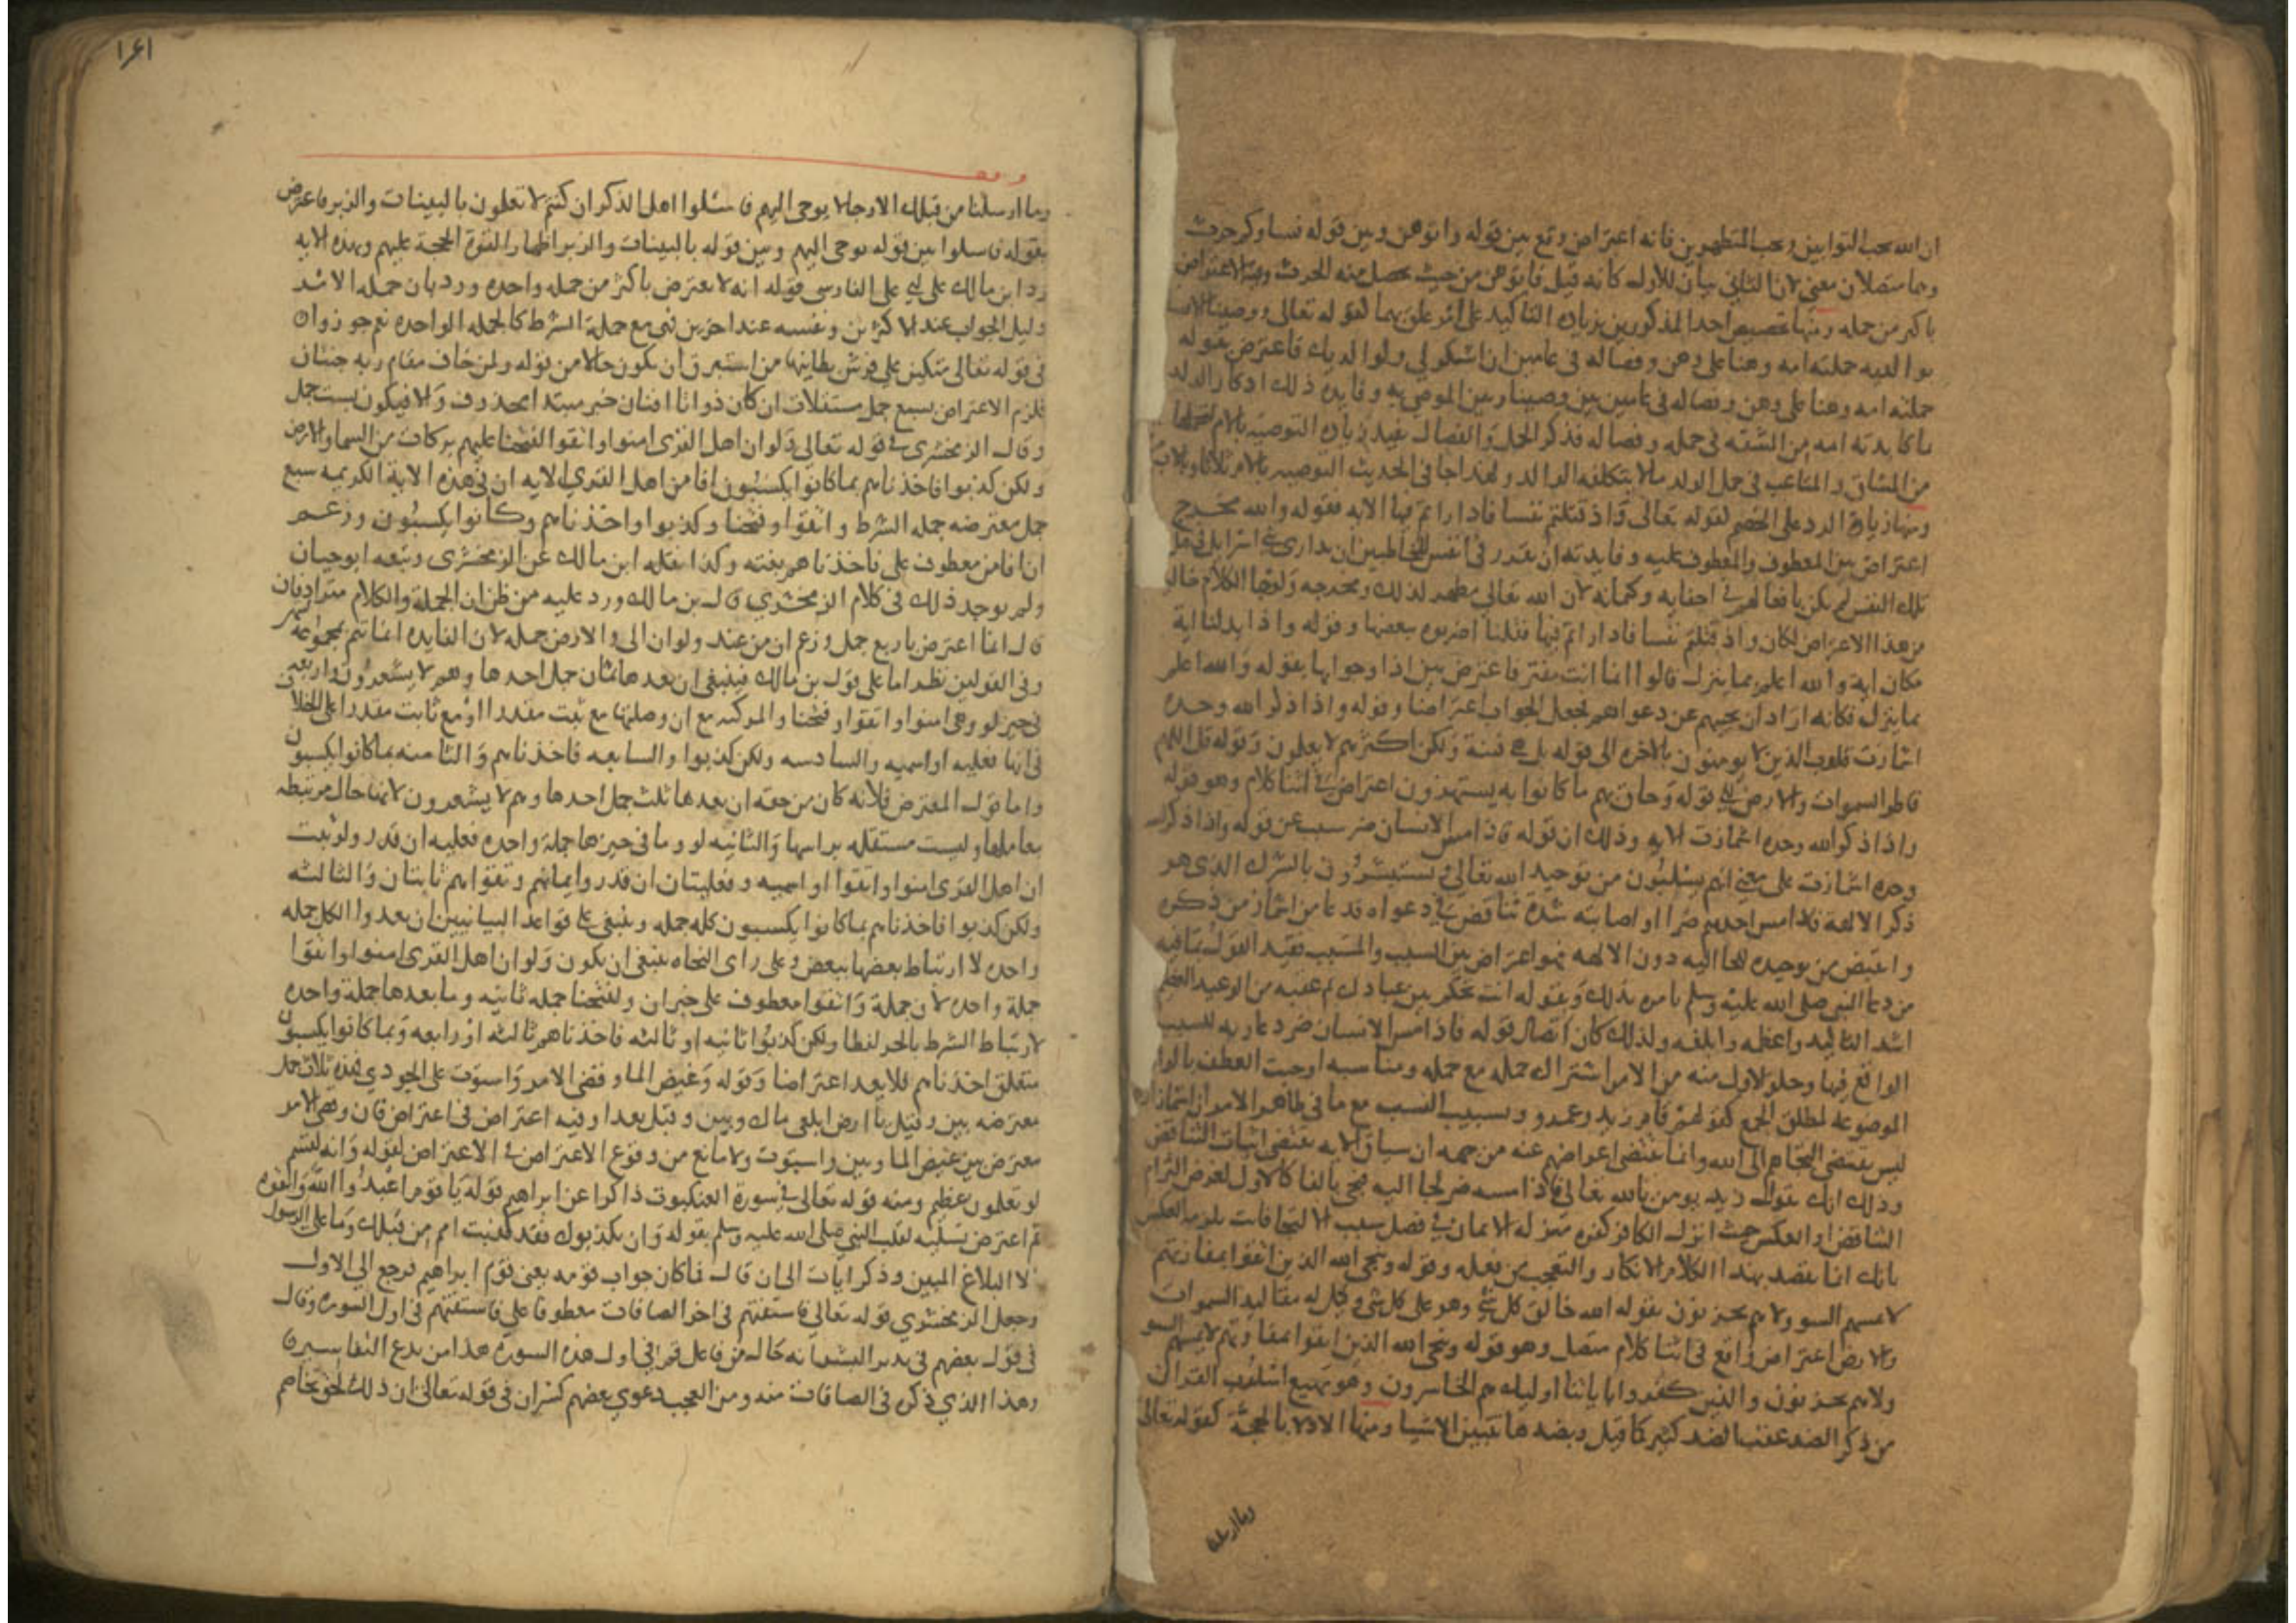 ان الله يحب التوابين ويحب المتطهرين فانه اعتراض وقع بين قوله فاتوهن وبين قوله نساوكم حرث
وهما متصلان معنى لان الثاني بيان للاول كانه قيل فاتوهن من حيث يحصل منه الحرث وفيه الاعتراض
باكثر من جمله ومنها تخصيص احد المذكورين بزيادة التاكيد على امر علق بهما كقوله تعالى ووصينا الانسان
بوالديه حملته امه وهنا على وهن وفصاله في عامين ان اشكر لي ولوالديك فاعترض بقوله
حملته امه وهنا على وهن وفصاله في عامين بين وصينا وبين الموصى به وفايدة ذلك ادكار الولد
ما كابدته امه من المشقه في حمله وفصاله فذكر الحمل والفصال يفيد زيادة التوصية بالام لتحملها
من المشاق والمتاعب في حمل الولد ما لا يتكلفه الوالد ولهذا جا في الحديث التوصيه بالام ثلاثا وبالاب
ومنها زيادة الرد على الخصم كقوله تعالى واذ قتلتم نفسا فادارأتم فيها الايه فقوله والله مخرج
اعتراض بين المعطوف والمعطوف عليه وفايدته ان يقرر في انفس المخاطبين ان تدارى بني اسرائيل في قتل
تلك النفس لم يكن نافعا لهم في اخفايه وكتمانه لان الله تعالى مظهر لذلك ومخرجه ولو جا الكلام خاليا
من هذا الاعتراض لكان واذ قتلتم نفسا فاداراتم فيها فقلنا اضربوه ببعضها وقوله واذا بدلنا اية
مكان اية والله اعلم بما ينزل قالوا انما انت مفتر فاعترض بين اذا وجوابها بقوله والله اعلم
بما ينزل فكانه اراد ان يجيبهم عن دعواهم فجعل الجواب اعتراضا وقوله واذا ذكر الله وحده
اشمازت قلوب الذين لا يومنون بالاخره الى قوله بل هي فتنة ولكن اكثرهم لا يعلمون وقوله قل اللهم
فاطر السموات والارض الى قوله وحاق بهم ما كانوا به يستهزون اعتراض في اثنا كلام وهو قوله
واذا ذكر الله وحده اشمازت الايه وذلك ان قوله فاذا مس الانسان ضر سبب عن قوله واذا ذكر الله
وحده اشمازت على معنى انهم يشمئزون من توحيد الله تعالى ويستبشرون بالشرك الذي هو
ذكر الالهة فاذا مس احدهم ضر او اصابته شدة تناقض في دعواه فدعا من اشماز من ذكره
وانقبض من توحيده ولجا اليه دون الالهه فهو اعتراض بين السبب والمسبب فقيد القول بما فيه
من دعا النبي صلى الله عليه وسلم بامره بذلك وبقوله انت تحكم بين عبادك ثم عقبه من الوعيد العظيم
اشد التاكيد واعظمه وابلغه ولذلك كان اتصال قوله فاذا مس الانسان ضر دعا ربه للسبب
الواقع فيها وخلو الاول منه من الامر اشتراك جمله مع جمله ومناسبه اوجبت العطف بالواو
الموضوعه لمطلق الجمع كقولهم قام زيد وعمرو وتسبيب السبب مع ما في ظاهر الاية من اشمازازهم
ليس يقتضي التجاهم الى الله وانما يقتضي اعراضهم عنه من جهه ان سياق الايه يقتضي اثبات التناقض
وذلك انك تقول زيد يومن بالله تعالى فاذا مسه ضر لجا اليه فتجي بالفا كالاول لغرض التزام
التناقض او العكس حيث انزل الكافر كفره منزلة الايمان في فصل سبب الالتجا فانت تلزمه العكس
بانك انما تقصد بهذا الكلام الانكار والتعجب من فعله وقوله وينجي الله الذين اتقوا بمفازتهم
لا يمسهم السو ولا هم يحزنون بقوله الله خالق كل شي وهو على كل شي وكيل له مقاليد السموات
والارض اعتراض واقع في اثنا كلام متصل وهو قوله وينجي الله الذين اتقوا بمفازتهم لا يمسهم السو
ولا هم يحزنون والذين كفروا بايات الله اوليك هم الخاسرون وهو مهيع اسلوب القران
من ذكر الضد عقب الضد كثير كما قيل وبضدها تتبين الاشيا ومنها الادلا بالحجة كقوله تعالى
وما ارسلنا
١٤١
وما ارسلنا من قبلك الا رجالا يوحى اليهم فاسئلوا اهل الذكر ان كنتم لا تعلمون بالبينات والزبر فاعترض
بقوله فاسلوا بين قوله نوحى اليهم وبين قوله بالبينات والزبر اظهارا لقوة الحجة عليهم وبهذه الايه
رد ابن مالك على ابي علي الفارسي قوله انه لا يعترض باكثر من جمله واحده ورد بان جمله الامر
دليل الجواب عند الاكثرين ونفسه عند اخرين فهي مع جملة الشرط كالجمله الواحده نعم جوزوا ان
في قوله تعالى متكئين على فرش بطاينها من استبرق ان يكون حالا من قوله ولمن خاف مقام ربه جنتان
فلزم الاعتراض بسبع جمل مستقلات ان كان ذواتا افنان خبر مبتدا محذوف والا فيكون بست جمل
وقال الزمخشري في قوله تعالى ولو ان اهل القرى امنوا واتقوا لفتحنا عليهم بركات من السما والارض
ولكن كذبوا فاخذناهم بما كانوا يكسبون افامن اهل القرى الايه ان في هذه الاية الكريمه سبع
جمل معترضه جمله الشرط واتقوا وفتحنا وكذبوا واخذناهم وكانوا يكسبون وزعم
ان افامن معطوف على فاخذناهم بغته وكذا نقله ابن مالك عن الزمخشري وتبعه ابو حيان
ولم يوجد ذلك في كلام الزمخشري قال بن مالك ورد عليه من ظن ان الجملة والكلام مترادفان
قال انما اعترض باربع جمل وزعم ان من عند ولو ان الى والارض جمله لان الفايده انما تتم بمجموعه
وفي القولين نظر اما على قول بن مالك فينبغي ان يعدها ثمان جمل احدها وهم لا يشعرون واربعه
في حيز لو وهي امنوا واتقوا وفتحنا والمركبه مع ان وصلتها مع ثبت مقدرا او مع ثابت مقدرا على الخلاف
في انها فعليه او اسميه والسادسه ولكن كذبوا والسابعه فاخذناهم والثامنه بما كانوا يكسبون
واما قول المعترض فلانه كان من حقه ان يعدها ثلث جمل احدها وهم لا يشعرون لانها حال مرتبطه
بعاملها وليست مستقله براسها والثانيه لو وما في حيزها جملة واحده فعليه ان قدر ولو ثبت
ان اهل القرى امنوا واتقوا او اسميه وفعليتان ان قدر وايمانهم وتقواهم ثابتان والثالثه
ولكن كذبوا فاخذناهم بما كانوا يكسبون كله جمله وينبغي على قواعد البيانيين ان يعدوا الكل جمله
واحده لارتباط بعضها ببعض وعلى راى النحاه ينبغي ان يكون ولو ان اهل القرى امنوا واتقوا
جملة واحده لان جملة واتقوا معطوف على خبر ان ولفتحنا جمله ثانيه وما بعدها جملة واحده
لارتباط الشرط بالجزا لفظا ولكن كذبوا ثانيه او ثالثه فاخذناهم ثالثه او رابعه وبما كانوا يكسبون
متعلق اخذناهم فلا يعد اعتراضا وقوله وغيض الما وقضي الامر واستوت على الجودي فهذه ثلاث جمل
معترضه بين وقيل يا ارض ابلعي ماك وبين وقيل بعدا وفيه اعتراض في اعتراض فان وقضي الامر
معترض بين غيض الما وبين واستوت ولا مانع من وقوع الاعتراض في الاعتراض كقوله وانه لقسم
لو تعلمون عظيم ومنه قوله تعالى في سورة العنكبوت ذاكرا عن ابراهيم قوله يا قوم اعبدوا الله واتقوه
ثم اعترض تسلية لقلب النبي صلى الله عليه وسلم بقوله وان يكذبوك فقد كذبت امم من قبلك وما على الرسول
الا البلاغ المبين وذكر ايات الى ان قال فما كان جواب قومه يعني قوم ابراهيم فرجع الى الاول
وجعل الزمخشري قوله تعالى فاستفتهم في اخر الصافات معطوفا على فاستفتهم في اول السوره وقال
في قول بعضهم في نذير للبشر انه حال من فاعل قم في اول هذه السورة هذا من بدع التفاسير
وهذا الذي ذكره في الصافات منه ومن العجب دعوى بعضهم كسران في قوله تعالى ان ذلك لحق تخاصم